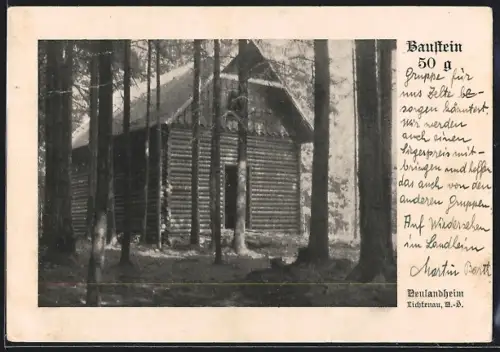 Baustein
50 g
Gruppe für
uns Zelte be-
sorgen könntest.
Wir werden
auch einen
Siegerpreis mit-
bringen und hoffen
das auch von den
anderen Gruppen.
Auf Wiedersehen
im Landheim
Martin
Neulandheim
Lichtenau, W.-B.